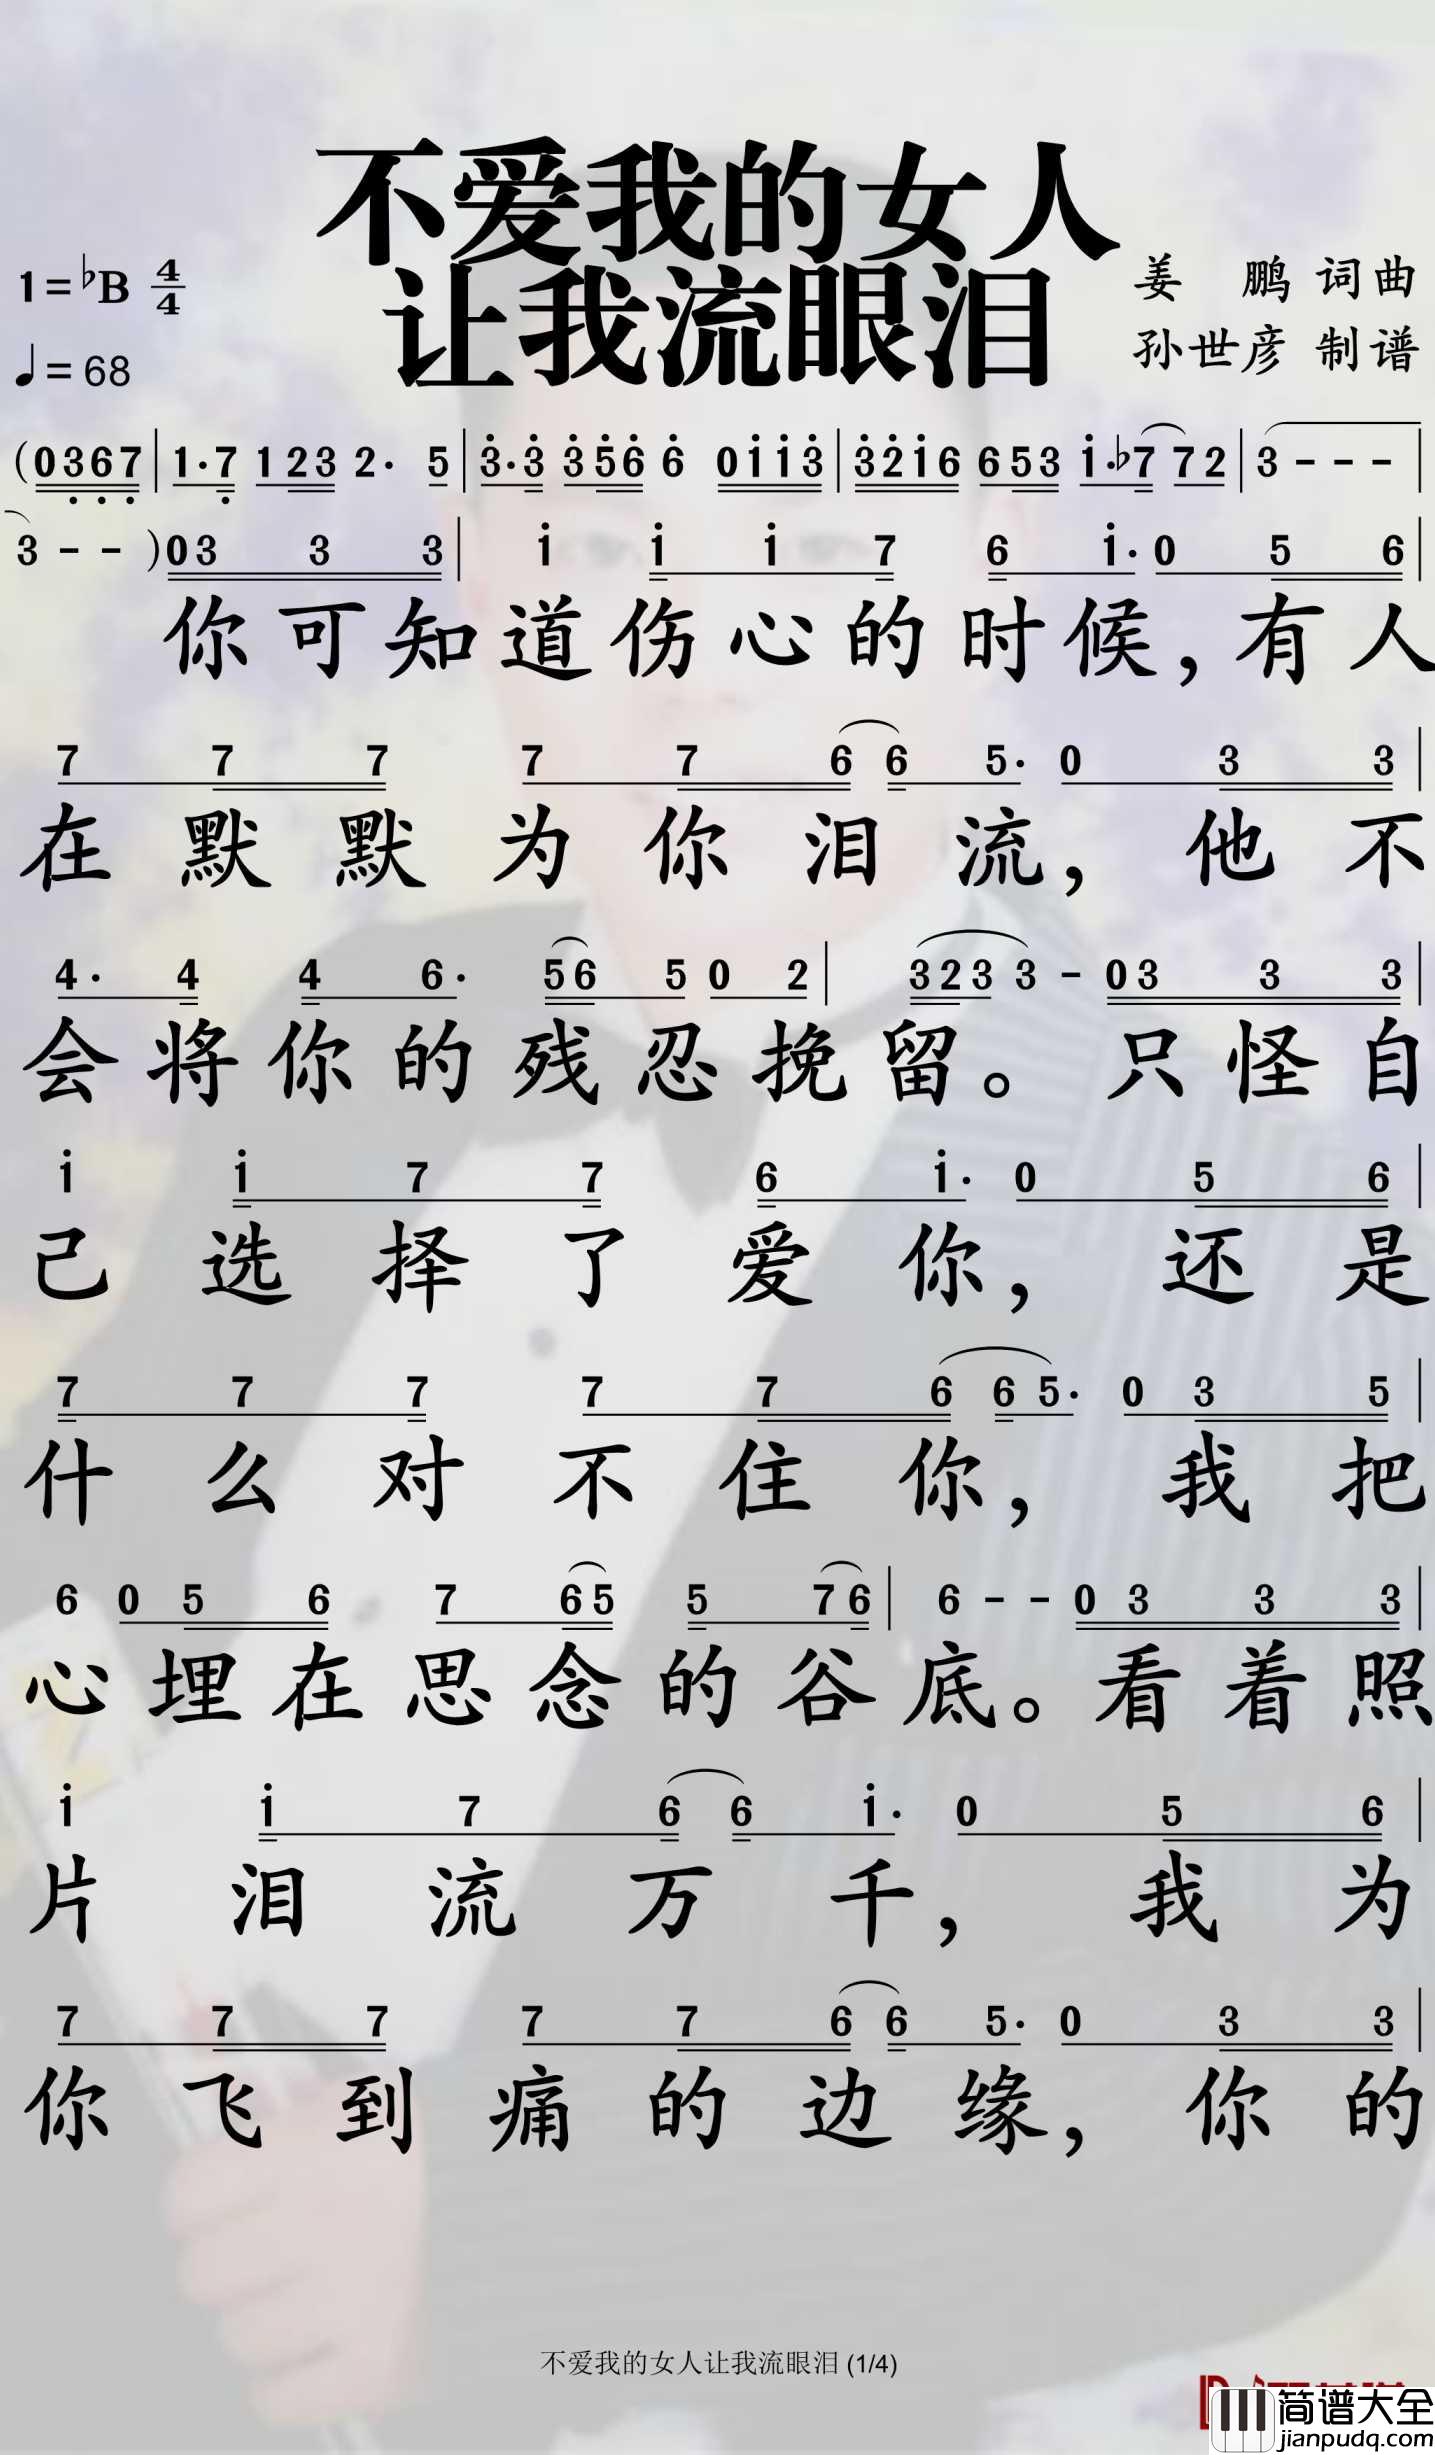 不爱我的女人
让我流眼泪
1=♭B 4/4
♩=68
姜 鹏 词曲
孙世彦 制谱
(0367|1·7 123 2· 5|3·3 356 6 0113|3216 653 1·♭7 72|3 - - -|
3 - - )03 3 3|1 1 1 7 6 1· 0 5 6|
你可知道伤心的时候,有人
7 7 7 7 7 6 6 5· 0 3 3|
在默默为你泪流,他不
4· 4 4 6· 56 5 0 2|323 3 - 03 3 3|
会将你的残忍挽留。只怪自
1 1 7 7 6 1· 0 5 6|
己选择了爱你,还是
7 7 7 7 7 6 6 5· 0 3 5|
什么对不住你,我把
6 0 5 6 7 65 5 76|6 - - 0 3 3 3|
心埋在思念的谷底。看着照
1 1 7 6 6 1· 0 5 6|
片泪流万千,我为
7 7 7 7 7 6 6 5· 0 3 3|
你飞到痛的边缘,你的
不爱我的女人让我流眼泪 (1/4)
简谱大全
jianpudq.com